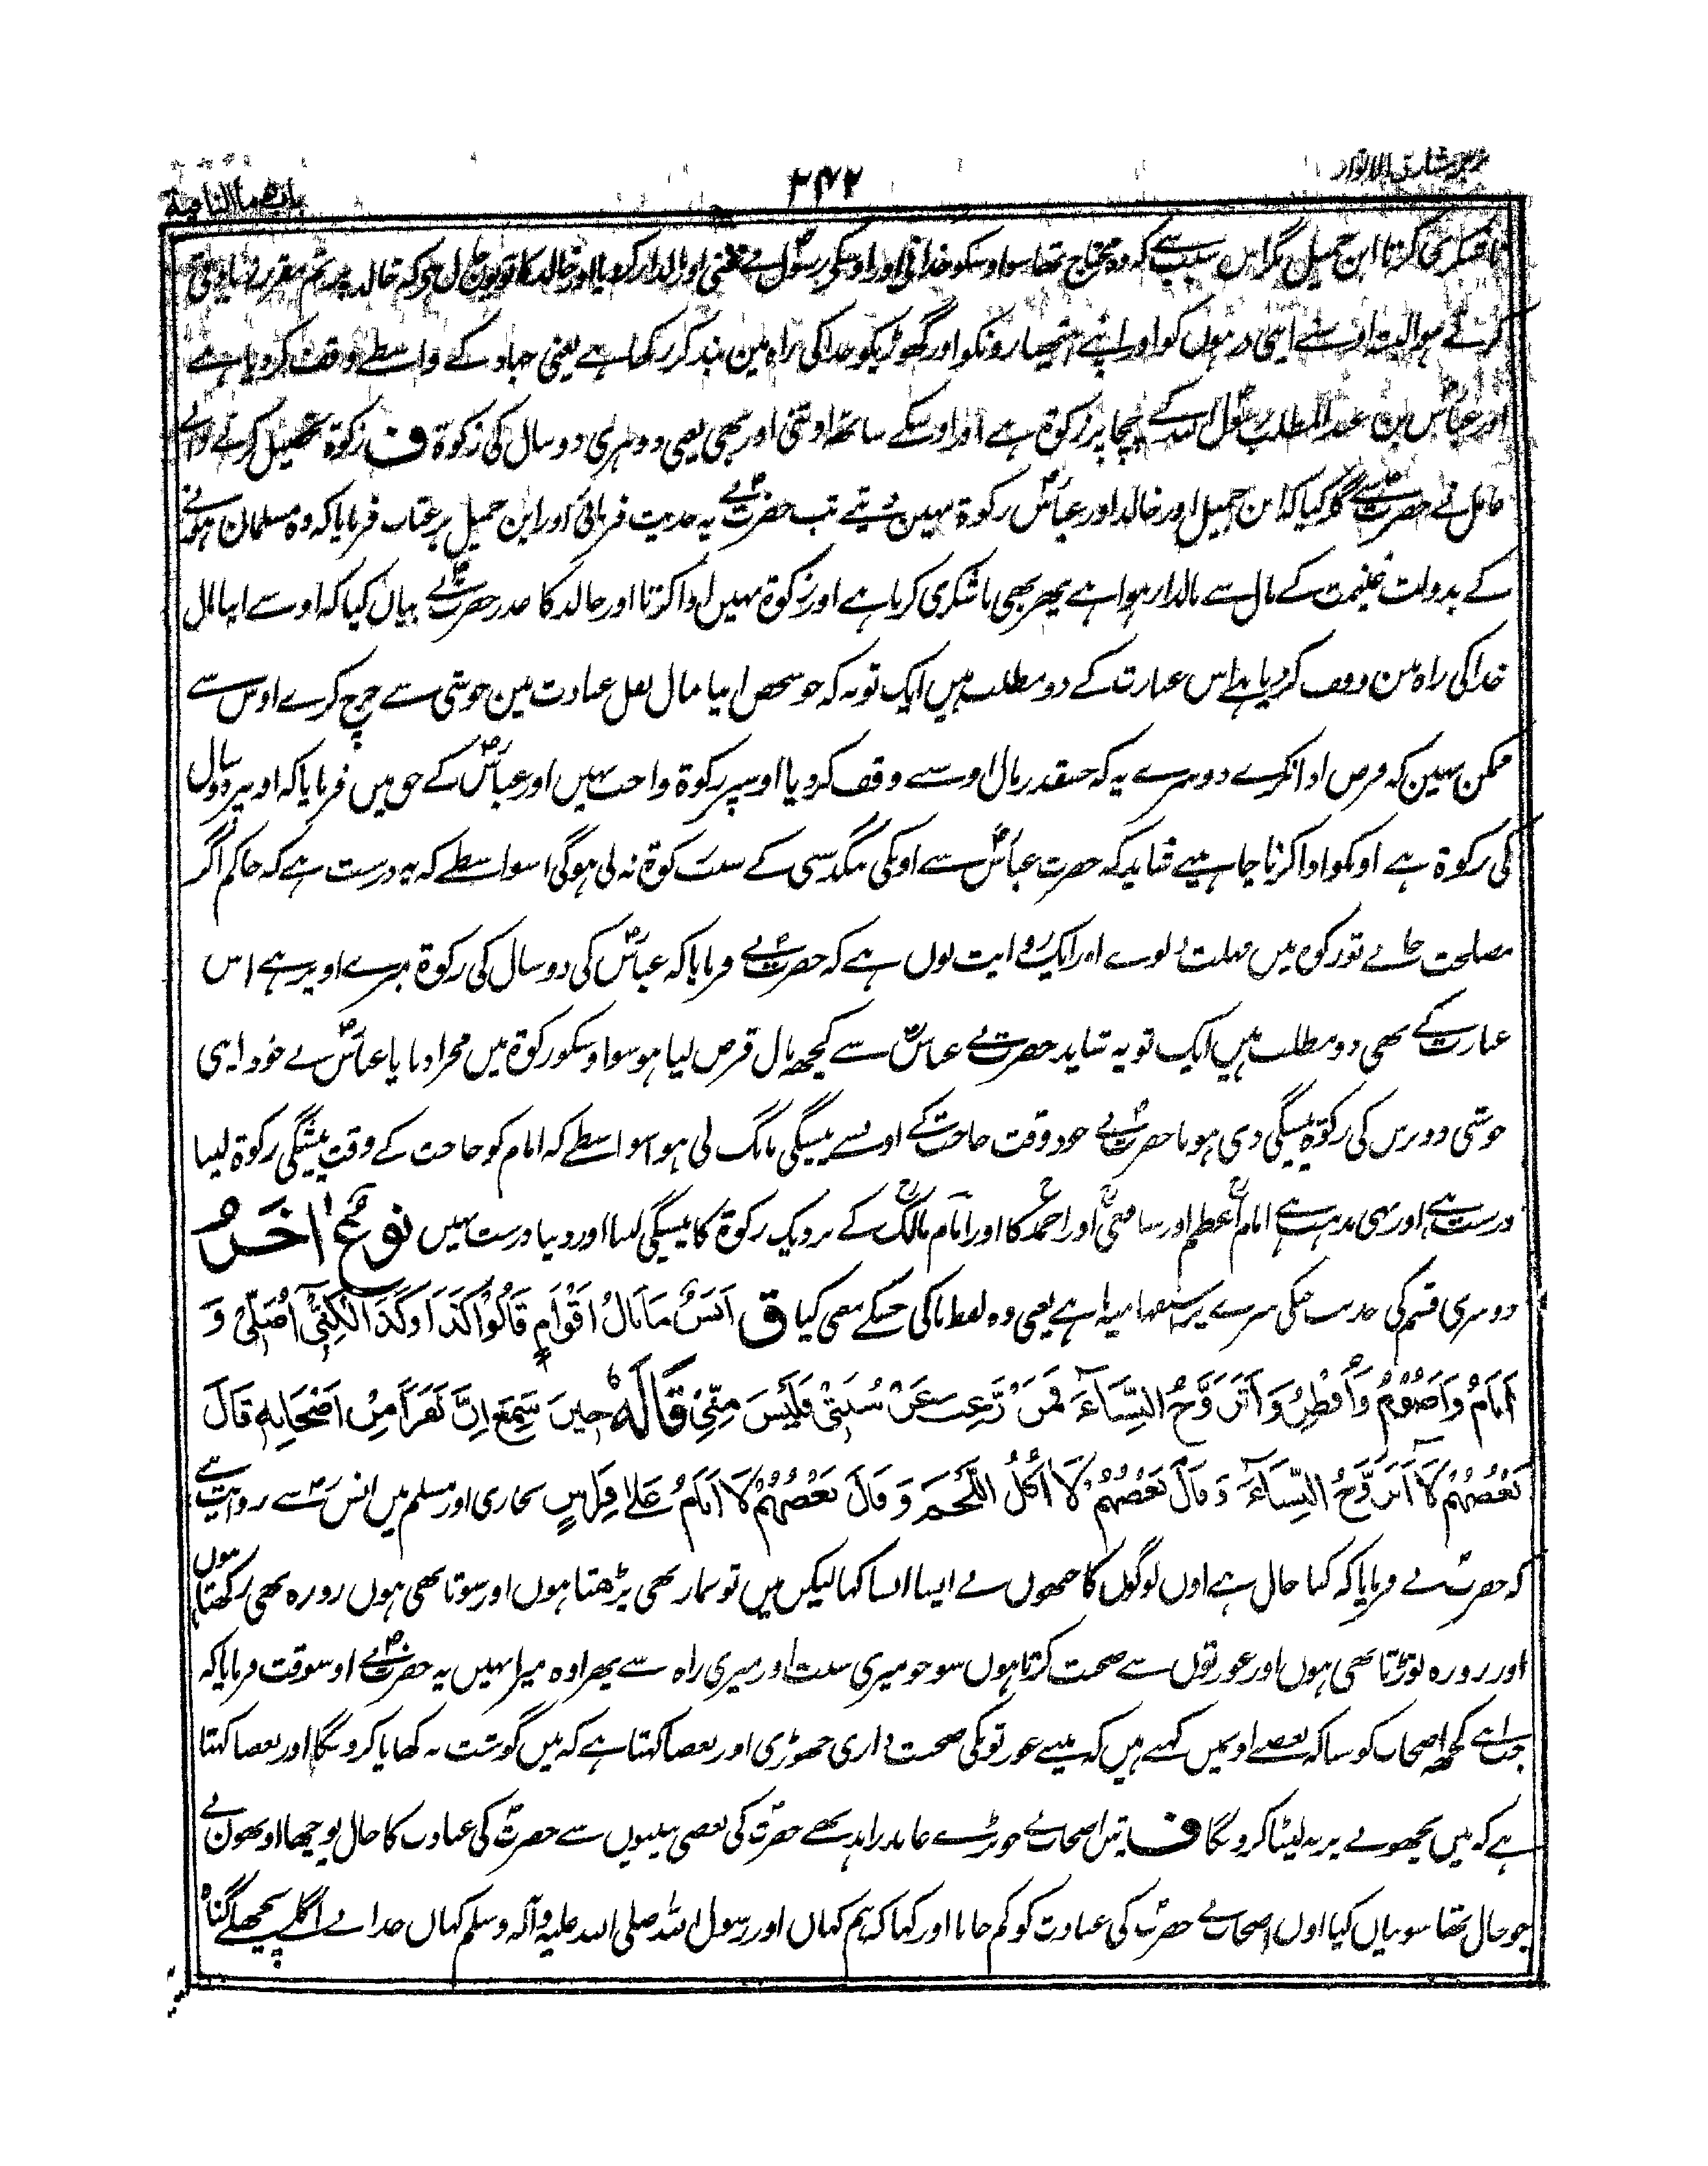 ترجمہ مشارق الانوار
۲۴۲
باب ما النافیة
ناشکری کرتا ابن جمیل مگر اس سبب سے کہ وہ محتاج تھا سو اوسکو خدا نے اور اوسکے رسول نے غنی اور مالدار کر دیا اور خالد کا تو یوں حال ہی کہ خالد پر تم مقرر زیادتی
کرتے ہو البتہ اوسنے اپنی درہوں کو اور اپنے ہتھیارونکو اور گھوڑیکو خدا کی راہ مین بند کر رکھا ہے یعنی جہاد کے واسطے وقف کر دیا ہے
اور عباسؓ بن عبد المطلب رسول اللہ کے چچا پر زکوة ہے اور اوسکے ساتھ اوتنی اور بھی یعنی دوہری دو سال کی زکوة ف زکوة تحصیل کرنے والے
عامل نے حضرتؐ سے گلہ کیا کہ ابن جمیل اور خالد اور عباسؓ زکوة نہین دیتے تب حضرتؐ نے یہ حدیث فرمائی اور ابن جمیل پر عتاب فرمایا کہ وہ مسلمان ہونے
کے بدولت غنیمت کے مال سے مالدار ہوا ہے پھر بھی ناشکری کرتا ہے اور زکوة نہیں ادا کرتا اور خالد کا عذر حضرتؐ نے بیان کیا کہ اوسے اپنا مال
خدا کی راہ مین وقف کر دیا ہے اس عبارت کے دو مطلب ہیں ایک تو یہ کہ جو شخص اپنا مال نفل عبادت مین خوشی سے خرچ کرے اوس سے
ممکن نہین کہ فرض ادا نکرے دوسرے یہ کہ جسقدر مال اوسے وقف کر دیا اوسپر زکوة واجب نہیں اور عباسؓ کے حق میں فرمایا کہ اوسپر دو سال
کی زکوة ہے اوسکو ادا کرنا چاہیے شاید کہ حضرت عباسؓ سے اونکی تنگدستی کے سبب زکوة نہ لی ہوگی اسواسطے کہ یہ درست ہے کہ حاکم اگر
مصلحت جانے تو زکوة میں مہلت دیوے اور ایک روایت یوں ہے کہ حضرتؐ نے فرمایا کہ عباسؓ کی دو سال کی زکوة میرے اوپر ہے اس
عبارت کے بھی دو مطلب ہیں ایک تو یہ شاید حضرتؐ نے عباسؓ سے کچھ مال قرض لیا ہو سو اوسکو زکوة میں مجرا دیا یا عباسؓ نے خود اپنی
خوشی دو برس کی زکوة پیشگی دی ہو یا حضرتؐ نے خود وقت حاجت کے اونسے پیشگی مانگ لی ہو اسواسطے کہ امام کو حاجت کے وقت پیشگی زکوة لینا
درست ہے اور یہی مذہب ہے امام اعظمؒ اور شافعیؒ اور احمدؒ کا اور امام مالکؒ کے نزدیک زکوة کا پیشگی لینا اور دینا درست نہیں نَوْعٌ اٰخَرُ
دوسری قسم کی حدیث جسکی سرے پر ما استفہامیہ ہے یعنی وہ لفظ ما کی جسکے معنی کیا ق اَنَسٌ مَا بَالُ اَقْوَامٍ قَالُوْا كَذَا وَكَذَا لٰكِنِّيْٓ اُصَلِّيْ وَ
اَنَامُ وَاَصُوْمُ وَاُفْطِرُ وَاَتَزَوَّجُ النِّسَآءَ فَمَنْ رَّغِبَ عَنْ سُنَّتِيْ فَلَيْسَ مِنِّيْ قَالَهٗ حِيْنَ سَمِعَ اِنَّ نَفَرًا مِّنْ اَصْحَابِهٖ قَالَ
بَعْضُهُمْ لَآ اَتَزَوَّجُ النِّسَآءَ وَقَالَ بَعْضُهُمْ لَا اٰكُلُ اللَّحْمَ وَقَالَ بَعْضُهُمْ لَا اَنَامُ عَلٰى فِرَاشٍ بخاری اور مسلم میں انسؓ سے روایت ہے
کہ حضرتؐ نے فرمایا کہ کیا حال ہے اون لوگوں کا جنھوں نے ایسا ایسا کہا لیکن میں تو نماز بھی پڑھتا ہوں اور سوتا بھی ہوں روزہ بھی رکھتا ہوں
اور روزہ توڑتا بھی ہوں اور عورتوں سے صحبت کرتا ہوں سو جو میری سنت اور میری راہ سے پھرا وہ میرا نہیں یہ حضرتؐ نے اوسوقت فرمایا کہ
جب اپنے کچھ اصحاب کو سنا کہ بعضے اونمیں کہتے ہیں کہ مینے عورتونکی صحبت داری چھوڑی اور بعضا کہتا ہے کہ میں گوشت نہ کھایا کرونگا اور بعضا کہتا
ہے کہ میں بچھونے پر نہ لیٹا کرونگا ف تین اصحاب نے جو بڑے عابد زاہد تھے حضرتؐ کی بعضی بیبیوں سے حضرتؐ کی عبادت کا حال پوچھا اونھون نے
جو حال تھا سو بیاں کیا اون اصحاب نے حضرتؐ کی عبادت کو کم جانا اور کہا کہ ہم کہاں اور رسول اللہ صلی اللہ علیہ وآلہ وسلم کہاں خدا نے اگلے پچھلے گناہ